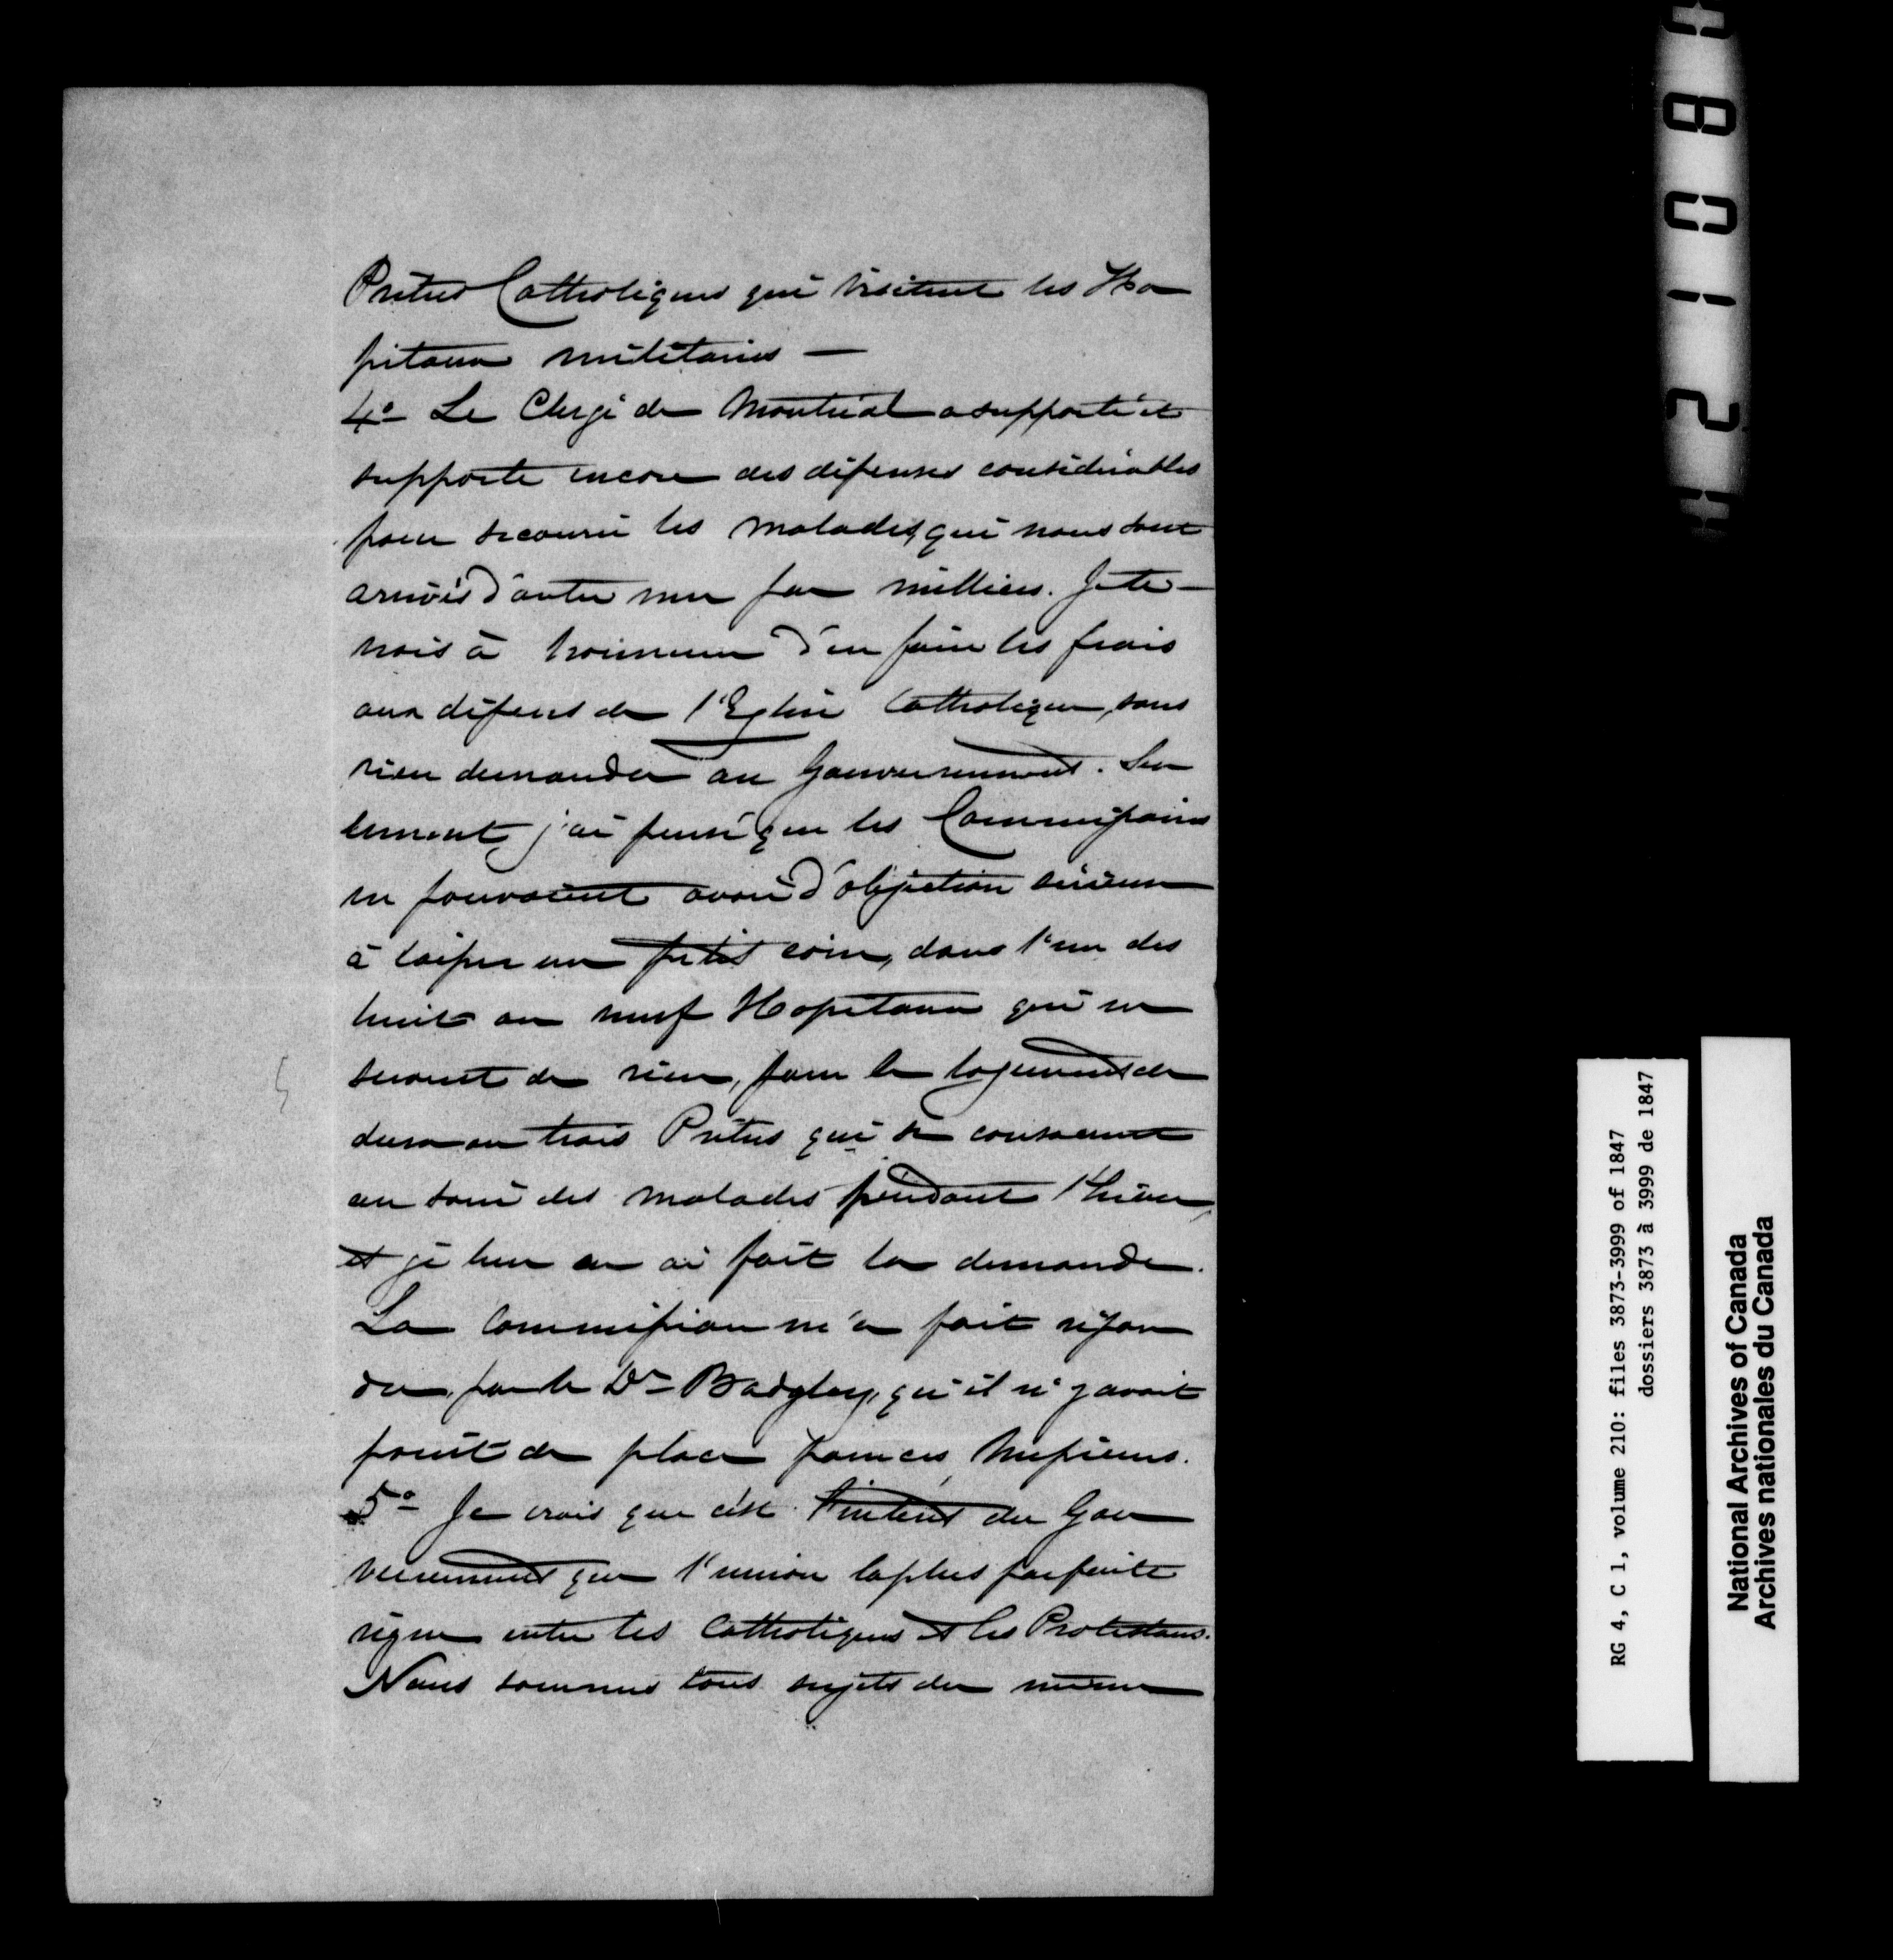 Prêtres Catholiques qui visitent les Ho
pitaux militaires —
4o Le Clergé de Montréal a supporté et
supporte encore des dépenses considérables
pour secourir les malades, qui nous sont
arrivés d'outre mer par milliers. Je te-
nais à honneur d'en faire les frais
aux dépens de l'Eglise Catholique, sans
rien demander au Gouvernement. Seu
lement, j'ai pensé que les Commissaires
ne pouvaient avoir d'objection sérieuse
à laisser un petit coin, dans l'un des
huit ou neuf Hopitaux qui ne
servent de rien, pour le logement de
deux ou trois Prêtres qui se consacrent
au soin des malades pendant l'hiver,
et je leur en ai fait la demande.
La Commission m'a fait répon
dre, par le Dr Badgley, qu'il n'y avait
point de place pour ces Messieurs.
5o Je crois que c'est l'intérêt du Gou
vernement que l'union la plus parfaite
règne entre les Catholiques et les Protestans.
Nous sommes tous sujets du même
RG 4, C 1, volume 210: files 3873-3999 of 1847
dossiers 3873 à 3999 de 1847
National Archives of Canada
Archives nationales du Canada